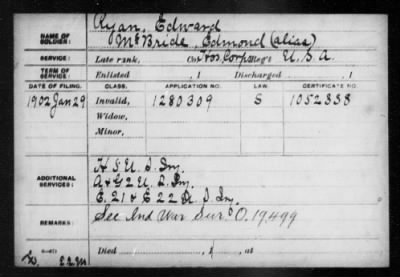 Ryan, Edward
NAME OF SOLDIER: McBride, Edmond (alias)
SERVICE: Late rank, Co. Hos. Corps Reg't U.S.A.
TERM OF SERVICE: Enlisted , 1 Discharged , 1
DATE OF FILING. CLASS. APPLICATION NO. LAW. CERTIFICATE NO.
1902 Jan 29 Invalid, 1280309 S 1052338
Widow,
Minor,
ADDITIONAL SERVICES: H 5 U.S. Inf.
A & G 2 U.S. Inf.
E. 21 & E 22 U.S. Inf.
REMARKS: See Ind War Sur. O. 19,499
Died , 1 , at